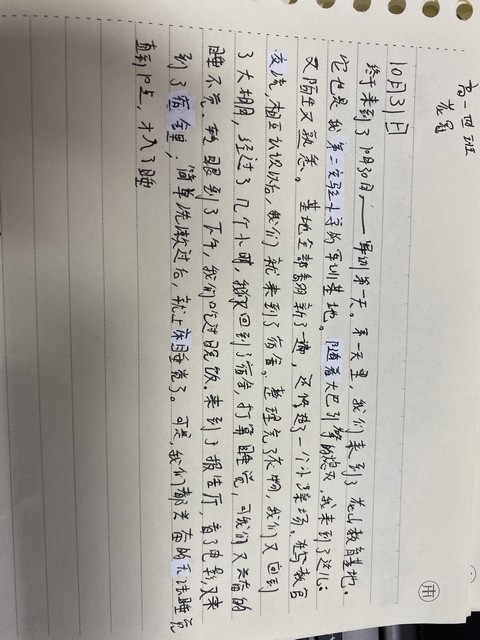 高一四班
10月31日
终于来到了10月30日——军训第一天。第一天里，我们来到了 山教育基地。
它也是我第二实验小学的军训基地。随着大巴引擎的熄灭，我来到了这儿。
又陌生又熟悉。基地全部翻新了一遍，还修建了一个小操场。与教官
交流，相互认识以后，我们就来到了宿舍。整理完衣物，我们又回到
了大棚，经过了几个小时，我又回到了宿舍，打算睡觉，可我们又兴奋的
睡不完。转眼到了下午，我们吃过晚饭。来到了报告厅，看了电影，又来
到了宿舍里，简单洗漱过后，就上床睡觉了。可是，我们都兴奋的无法睡觉
直到12点，才入了睡